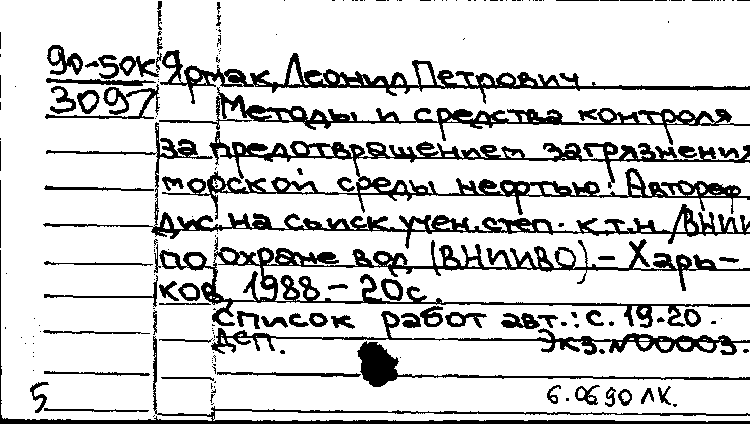 90-50К Ярмак, Леонид Петрович.
3097 Методы и средства контроля
за предотвращением загрязнения
морской среды нефтью: Автореф
дис. на сыиск. учен. степ. к.т.н. /ВНИИ
по охране вод (ВНИИВО).- Харь-
ков, 1988.- 20с.
Список работ авт.: с. 19-20.
ДСП. Экз. №00003.
6.06 90 ЛК.
5